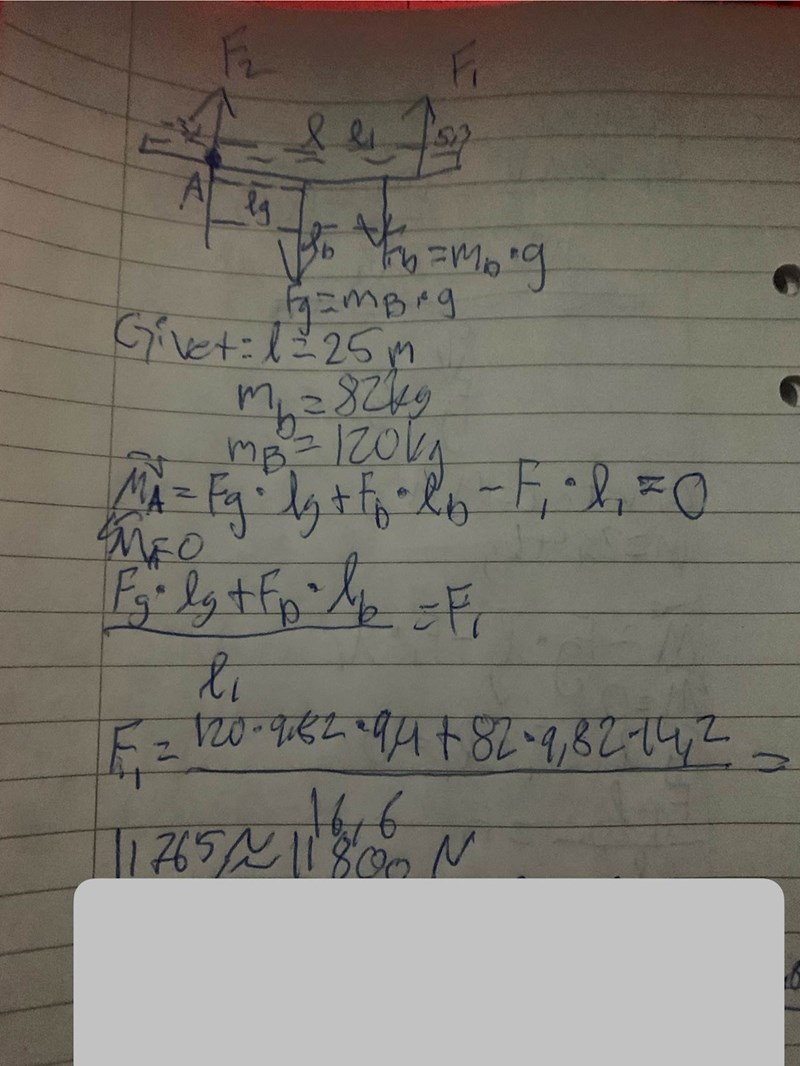 F₂ F₁
l l₁
A lg
lb
Fb = mb · g
Fg = mB · g
Givet: l = 25 m
mb = 82 kg
mB = 120 kg
MA = Fg · lg + Fb · lb − F₁ · l₁ = 0
Fg · lg + Fb · lb = F₁
l₁
F₁ = 120 · 9,82 · 9,4 + 82 · 9,82 · 14,2 =
16,6
11 765 ≈ 11 800 N